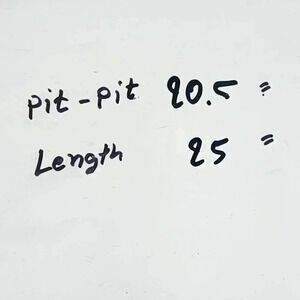 pit-pit 20.5 "
Length 25 "